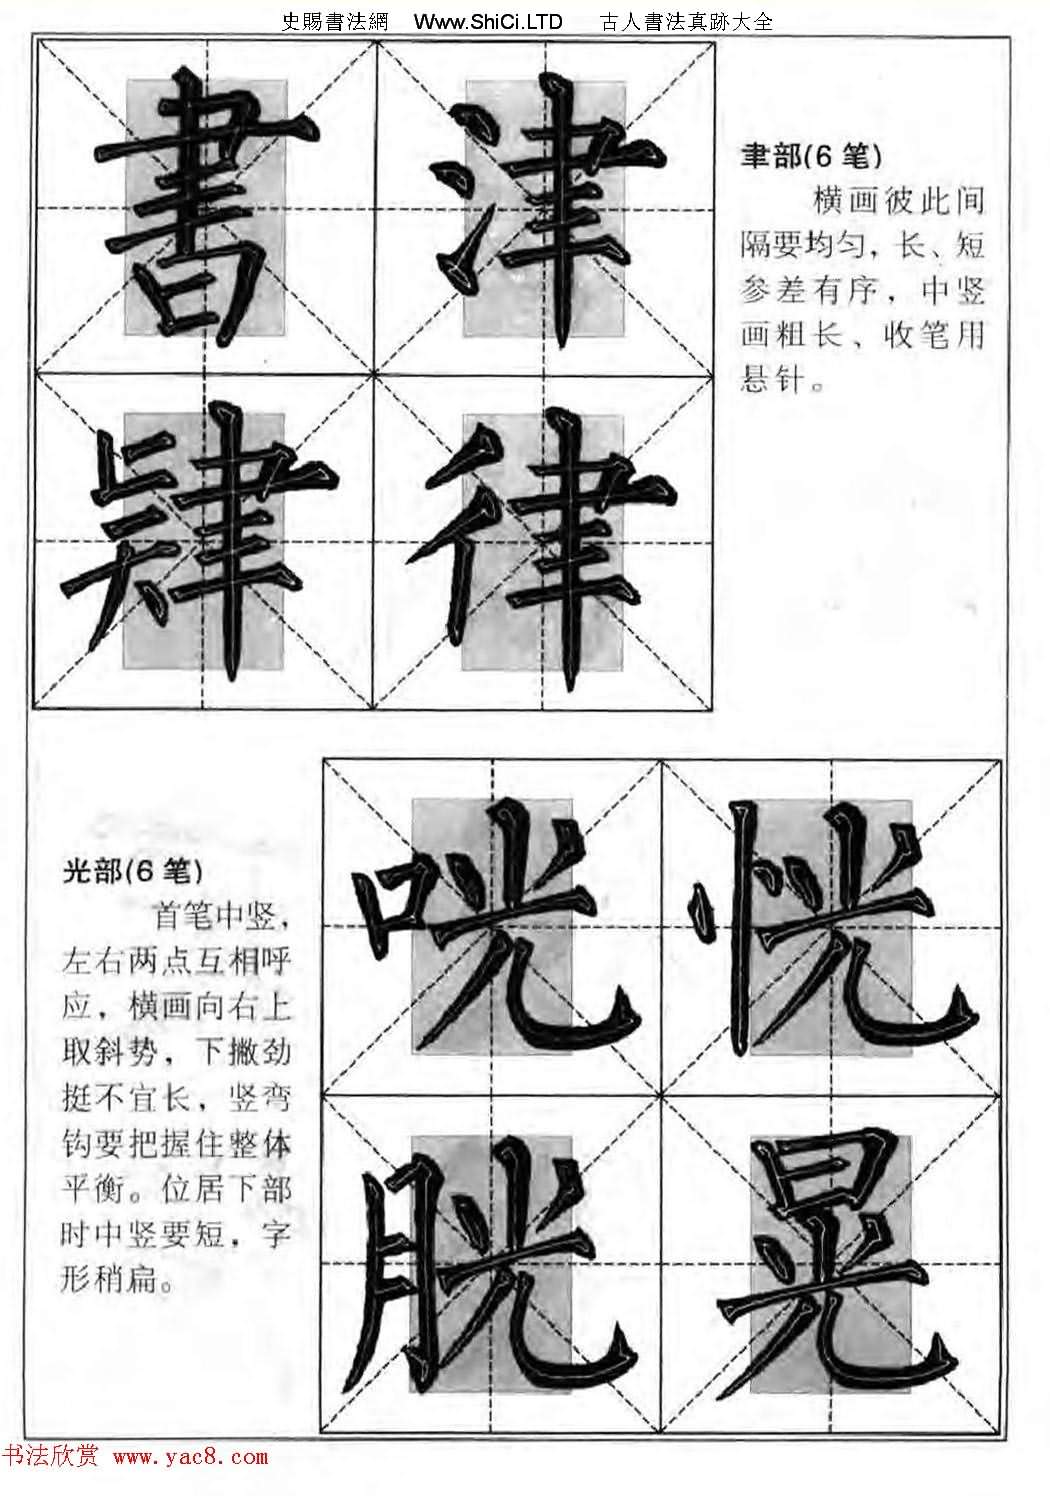 史賜書法網 Www.ShiCi.LTD 古人書法真跡大全
書 津
聿部(6笔)
横画彼此间
隔要均匀，长、短
参差有序，中竖
画粗长、收笔用
悬针。
肄 律
光部(6笔)
首笔中竖，
左右两点互相呼
应，横画向右上
取斜势，下撇劲
挺不宜长，竖弯
钩要把握住整体
平衡。位居下部
时中竖要短，字
形稍扁。
咣 恍
胱 晃
书法欣赏 www.yac8.com